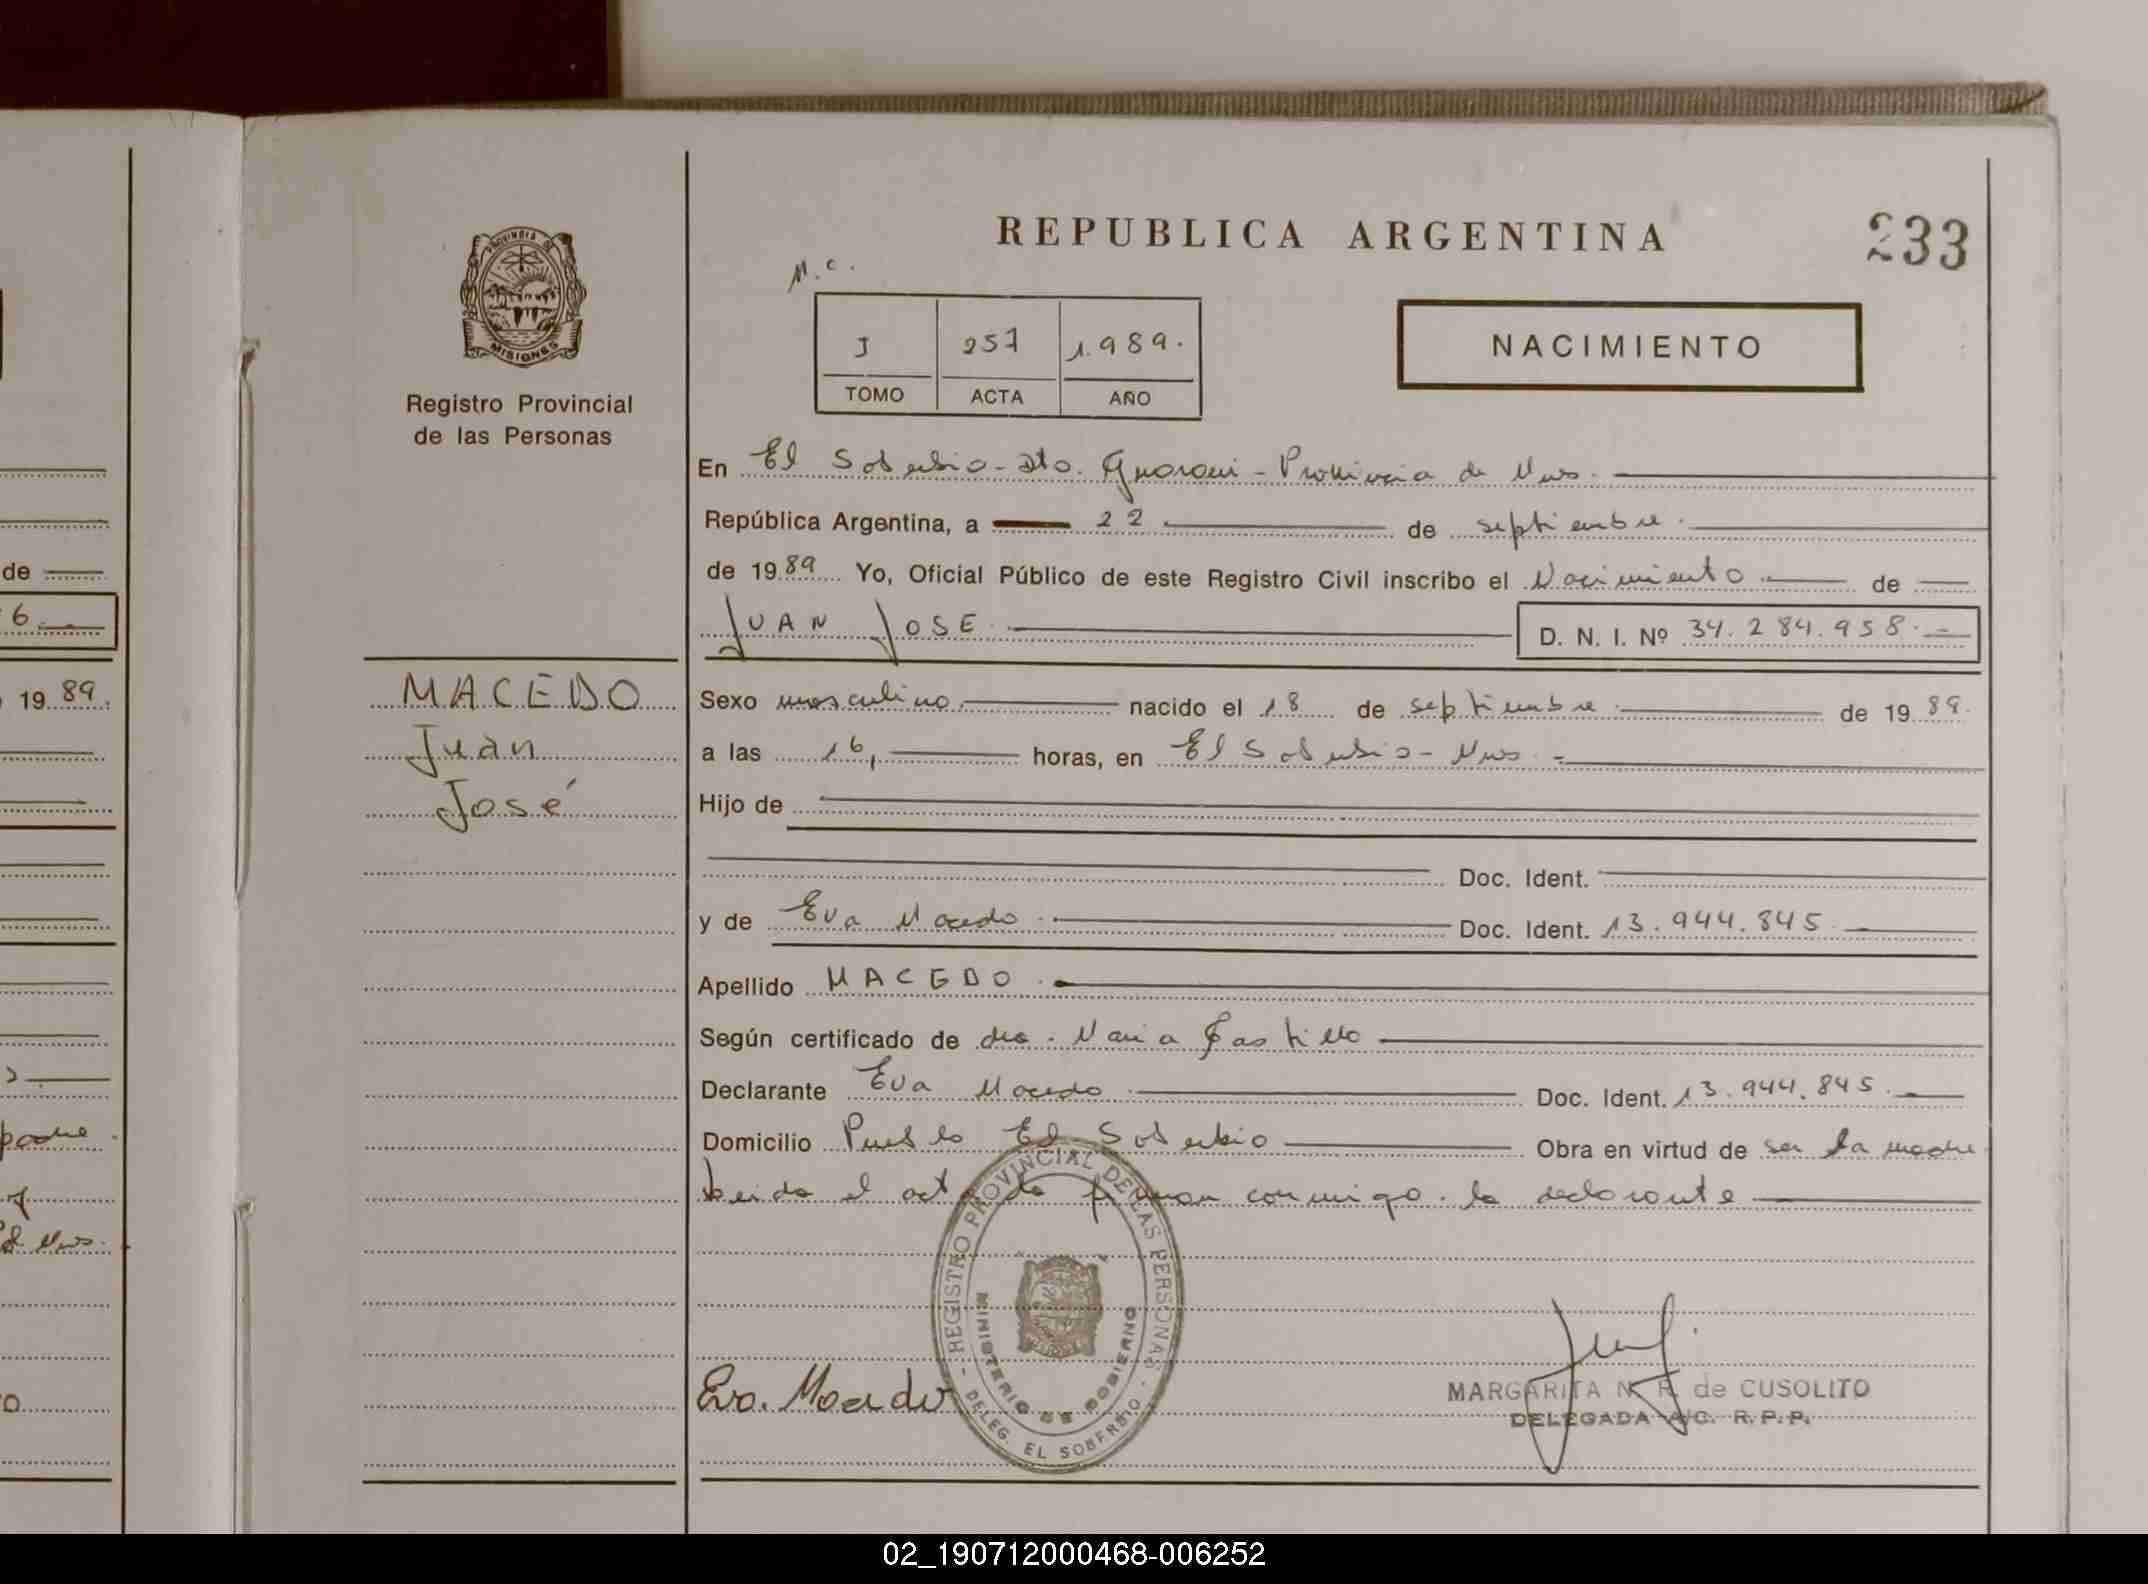 REPUBLICA ARGENTINA
233
PROVINCIA DE
MISIONES
Registro Provincial
de las Personas
M.C.
I 257 1.989.
TOMO ACTA AÑO
NACIMIENTO
En El Soberbio - Dto. Guarani - Provincia de Mnes.
República Argentina, a 22 de septiembre.
de 1989 Yo, Oficial Público de este Registro Civil inscribo el Nacimiento de
JUAN JOSE D. N. I. Nº 34.284.958.-
MACEDO
Juan
José
Sexo masculino nacido el 18 de septiembre de 1989.
a las 16, horas, en El Soberbio - Mnes. -
Hijo de
Doc. Ident.
y de Eva Macedo Doc. Ident. 13.944.845.
Apellido MACEDO.
Según certificado de dra. Maria Castillo
Declarante Eva Macedo Doc. Ident. 13.944.845.
Domicilio Pueblo El Soberbio Obra en virtud de ser la madre.
leida el acta la firman conmigo. la declarante
REGISTRO PROVINCIAL DE LAS PERSONAS
MINISTERIO DE GOBIERNO
- DELEG. EL SOBERBIO -
Eva. Macedo
MARGARITA N. R. de CUSOLITO
DELEGADA A/C. R.P.P.
de
6.
19 89.
padre.
Mnes.
02_190712000468-006252